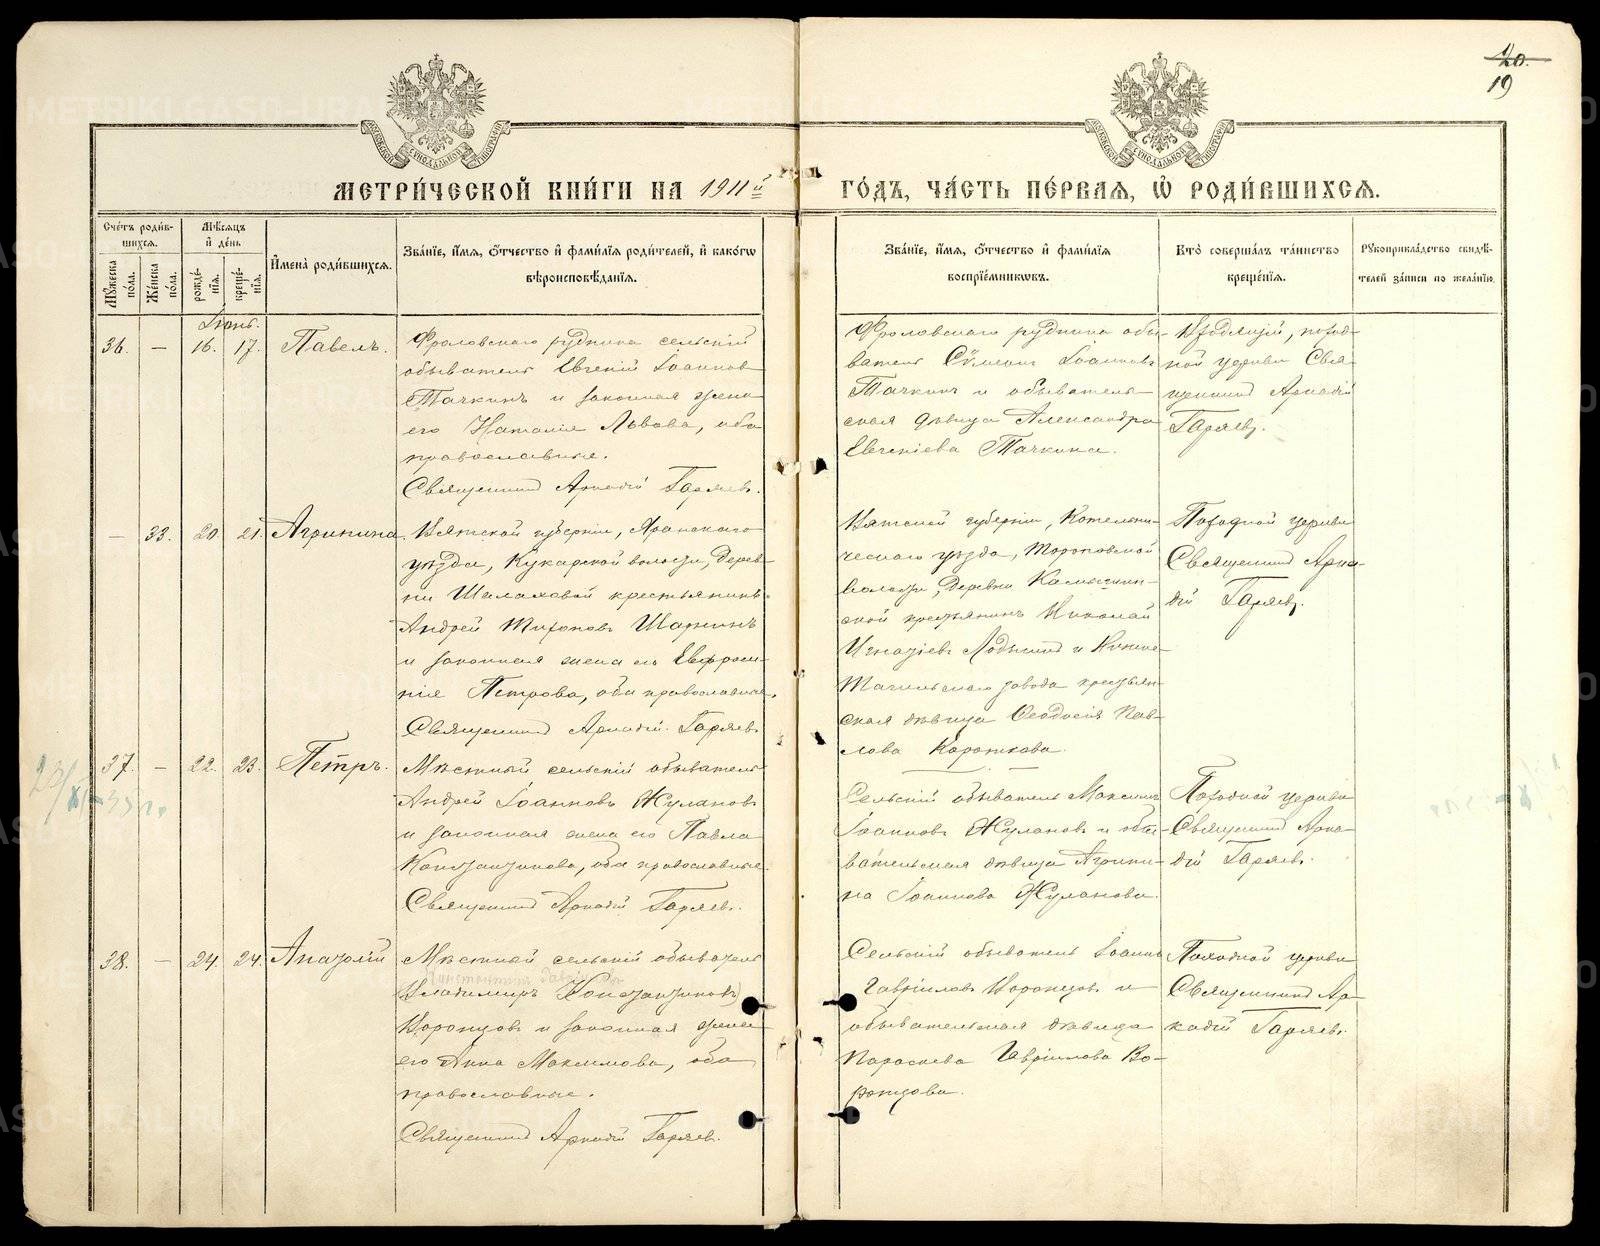 20.
19
МЕТРИ́ЧЕСКОЙ КНИ́ГИ НА 1911й ГО́ДЪ, ЧА́СТЬ ПЕ́РВАЯ, Ѡ҆ РОДИ́ВШИХСЯ.
Сче́тъ роди́в-
шихся.
Му́жеска по́ла.
Же́нска по́ла.
Мѣ́сяцъ и҆ де́нь
рожде́-
нїя.
креще́-
нїя.
И҆мена̀ роди́вшихся.
Зва́нїе, и҆́мя, ѻ҆́тчество и҆ фами́лїя роди́телей, и҆ како́гѡ
вѣроисповѣ́данїя.
Зва́нїе, и҆́мя, ѻ҆́тчество и҆ фами́лїя
воспрїе́мниковъ.
Кто̀ соверша́лъ та́инство
креще́нїя.
Рукоприкла́дство свидѣ́-
телей за́писи по жела́нїю.
Іюнь.
36. — 16. 17. Павелъ.
Фроловскаго рудника сельскій
обыватель Евгеній Іоанновъ
Тачкинъ и законная жена
его Наталія Львова, оба
православные.
Священникъ Аркадій Гаряевъ.
Фроловскаго рудника обы-
ватель Сѵмеонъ Іоанновъ
Тачкинъ и обыватель-
ская дѣвица Александра
Евгеніева Тачкина.
поход-
ной церкви Свя-
щенникъ Аркадій
Гаряевъ.
— 33. 20. 21. Агрипина
Вятской губерніи, Яранскаго
уѣзда, Кукарской волости, дерев-
ни Шалаховой крестьянинъ
Андрей Мироновъ Шаринъ
и законная жена его Евфроси-
нія Петрова, оба православные.
Священникъ Аркадій Гаряевъ.
Вятской губерніи, Котельни-
ческаго уѣзда, Тороповской
волости, деревни
ской крестьянинъ Николай
Игнатіевъ Лодыгинъ и Нижне-
Тагильскаго завода крестьян-
ская дѣвица Ѳеодосія Пав-
лова Короткова.
Походной церкви
Священникъ Арка-
дій Гаряевъ.
37. — 22. 23. Петръ.
Мѣстный сельскій обыватель
Андрей Іоанновъ Жулановъ
и законная жена его Павла
Константинова, оба православные.
Священникъ Аркадій Гаряевъ.
Сельскій обыватель Максимъ
Іоанновъ Жулановъ и обы-
вательская дѣвица Агрипи-
на Іоаннова Жуланова.
Походной церкви
Священникъ Арка-
дій Гаряевъ.
38. — 24. 24. Анатолій
Мѣстный сельскій обыватель
Владимиръ Константиновъ
Воронцовъ и законная жена
его Анна Максимова, оба
православные.
Священникъ Аркадій Гаряевъ.
Сельскій обыватель Іоаннъ
Гавріиловъ Воронцовъ и
обывательская дѣвица
Параскева Гавріилова Во-
ронцова.
Походной церкви
Священникъ Ар-
кадій Гаряевъ.